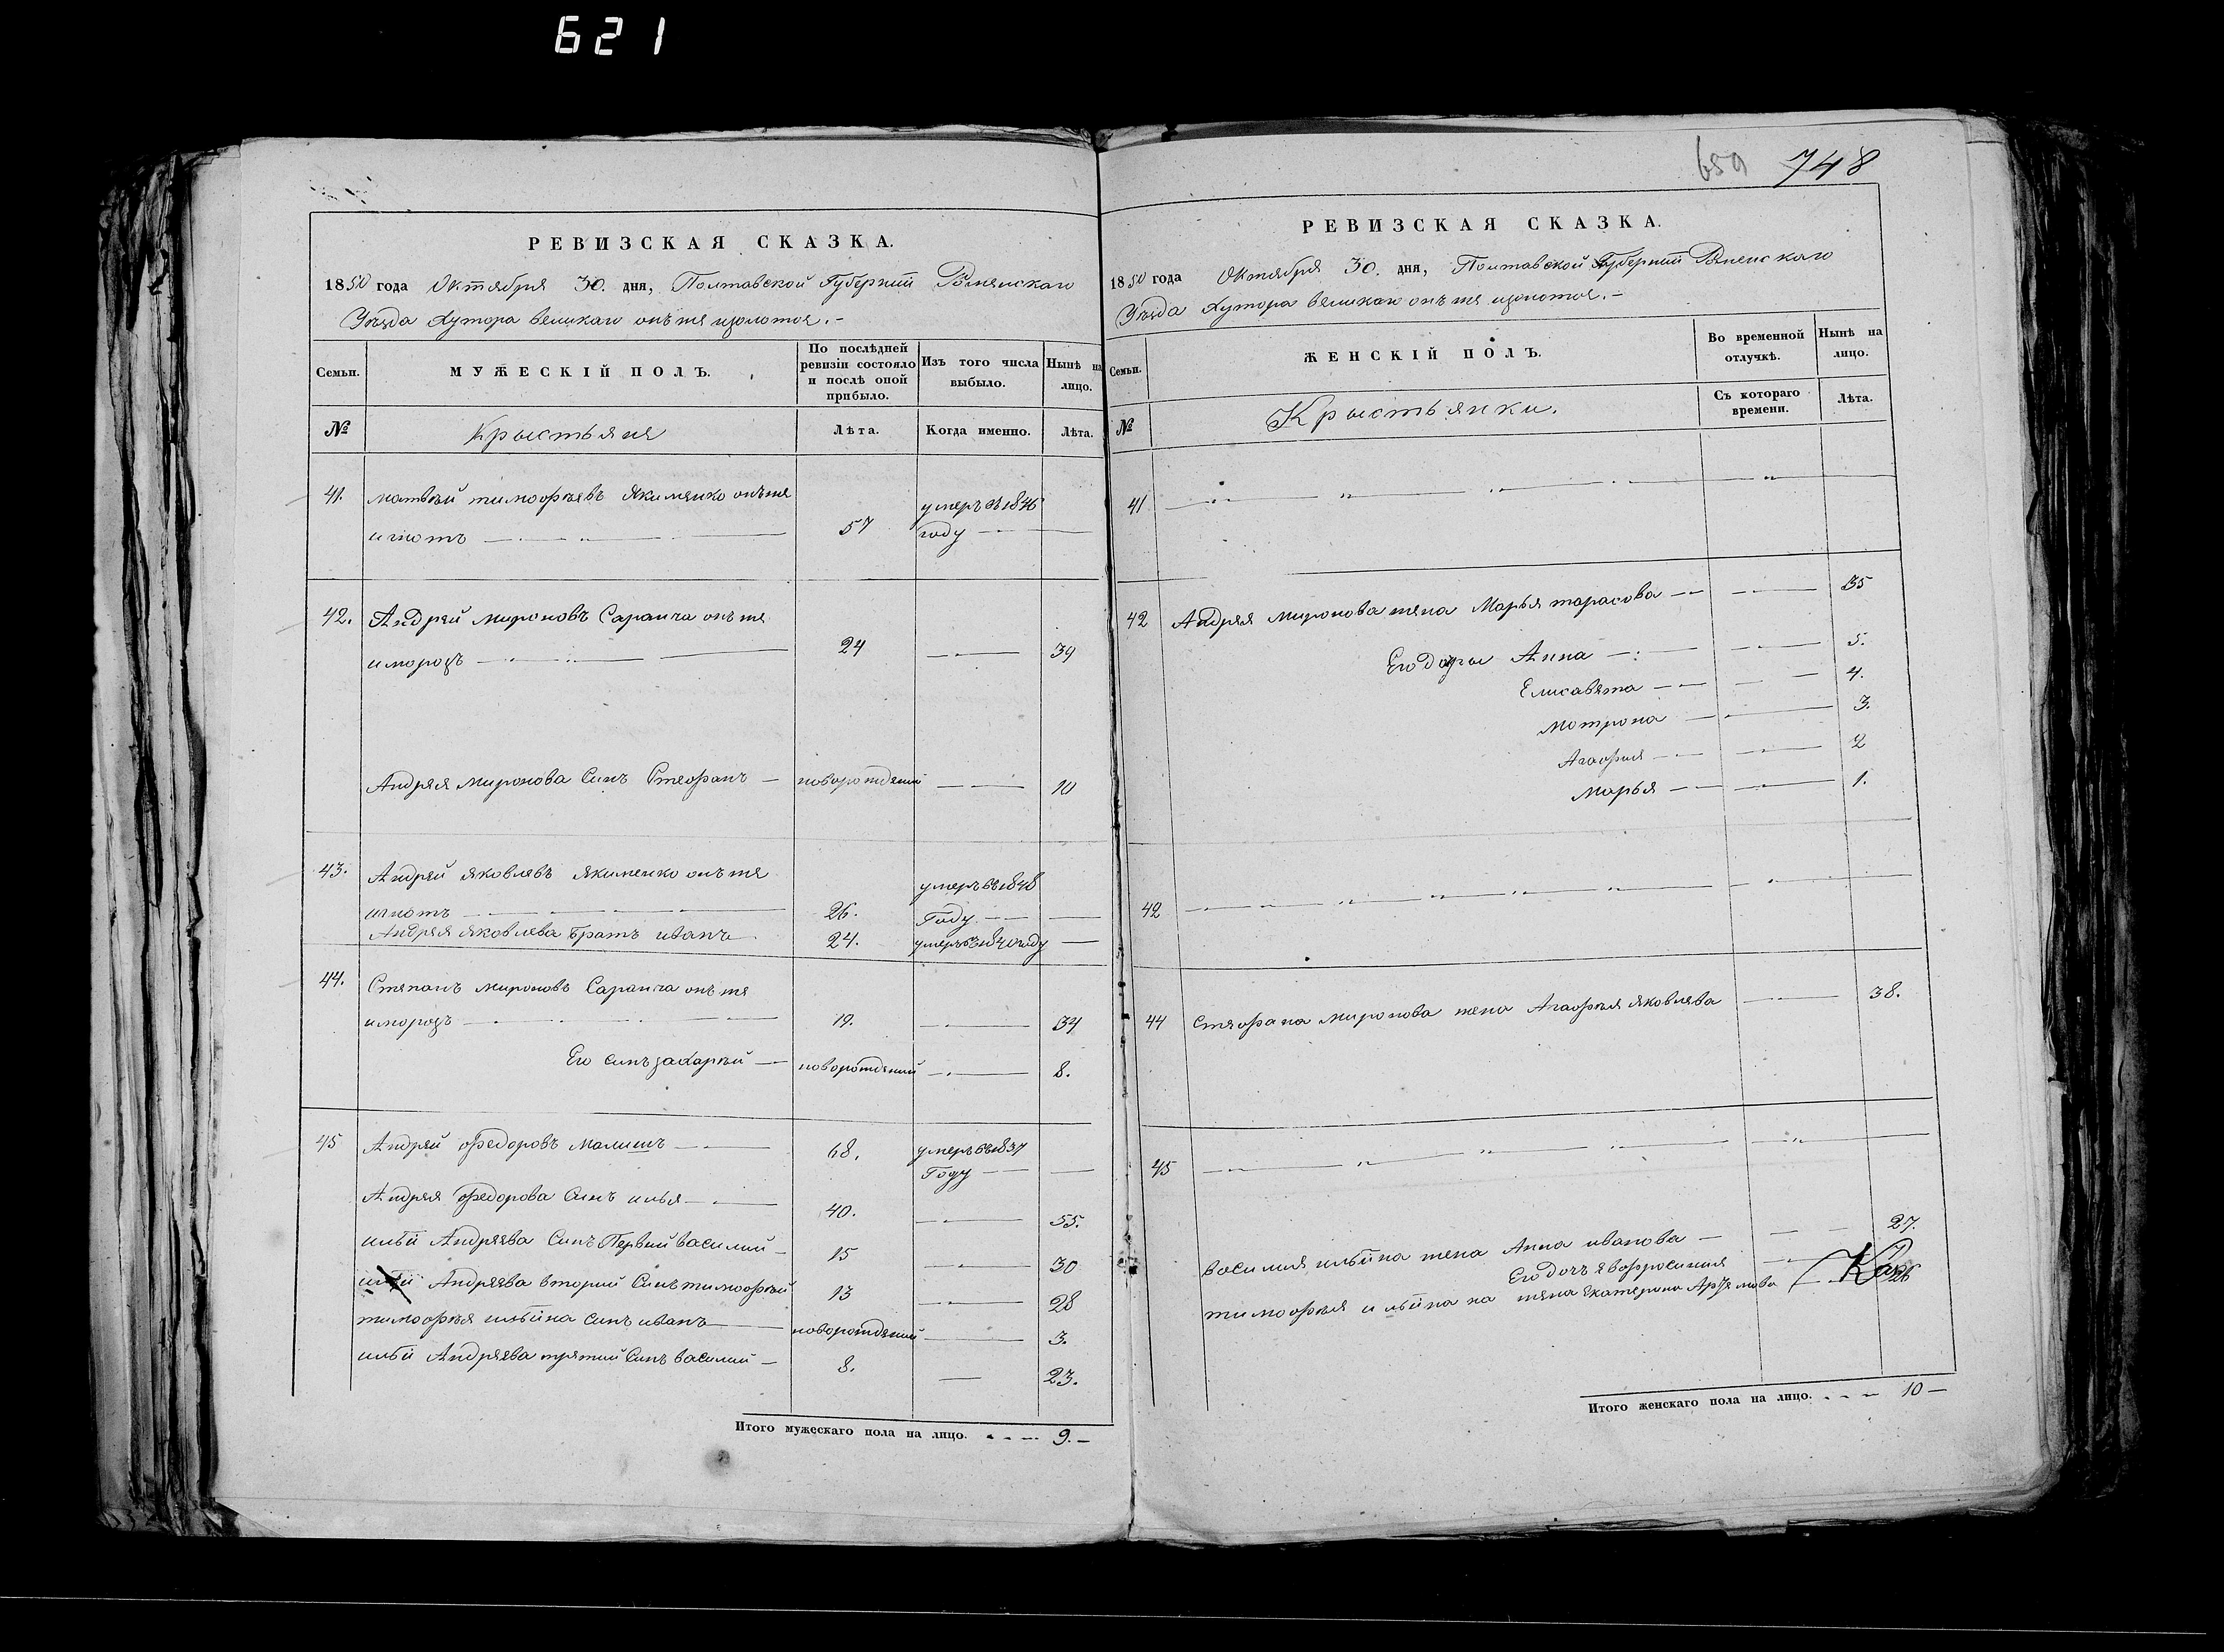 621
659 748
РЕВИЗСКАЯ СКАЗКА.
1850 года Октября 30. дня, Полтавской Губерніи Роменскаго
Уезда Хутора великаго онъже изолотое.-
Семьи. МУЖЕСКІЙ ПОЛЪ. По послѣдней ревизіи состояло и послѣ оной прибыло. Изъ того числа выбыло. Нынѣ на лицо.
№ Крыстьяня Лѣта. Когда именно. Лѣта.
41. матвѣй тимофѣевъ якименко онъже умеръ в 1846
игнотъ 57 году
42. Андрей мироновъ Саранча онъже
иморозъ 24 39
Андрея миронова Синъ Стефанъ новорожденій 10
43. Андрей яковлевъ якименко онъже умеръ въ 1848
игнотъ 26. Году
Андрея яковлева братъ иванъ 24. умеръ въ 1840 году
44. Степанъ мироновъ Саранча онъже
иморозъ 19. 34
Его синъ захарѣй новорожденій 8.
45 Андрей федоровъ Малишъ 68. умеръ въ 1837
Году
Андрея федорова Синъ илья 40. 55.
ильи Андреева Синъ Первый василий 15 30
ильи Андреева вторий Синъ тимофѣй 13 28
тимофѣя ильина синъ иванъ новорожденій 3.
ильи Андреева третий Синъ василий 8. 23.
Итого мужескаго пола на лицо. 9.-
РЕВИЗСКАЯ СКАЗКА.
1850 года Октября 30. дня, Полтавской Губерніи Роменскаго
Уезда Хутора великаго онъже изолотое.-
Семьи. ЖЕНСКІЙ ПОЛЪ. Во временной отлучкѣ. Нынѣ на лицо.
№ Крыстьянки. Съ котораго времени. Лѣта.
41
42 Андрея миронова жена Марья тарасова 35
Его дочры Анна 5.
Елисавета 4.
мотрона 3.
Агафия 2
марья 1.
42
44 Стефана миронова жена Агафѣя яковлева 38.
45
василия ильина жена Анна иванова 27.
Его дочъ Евфросиния
тимофѣя ильина жена Екатерина Артемова 26
Итого женскаго пола на лицо. 10-